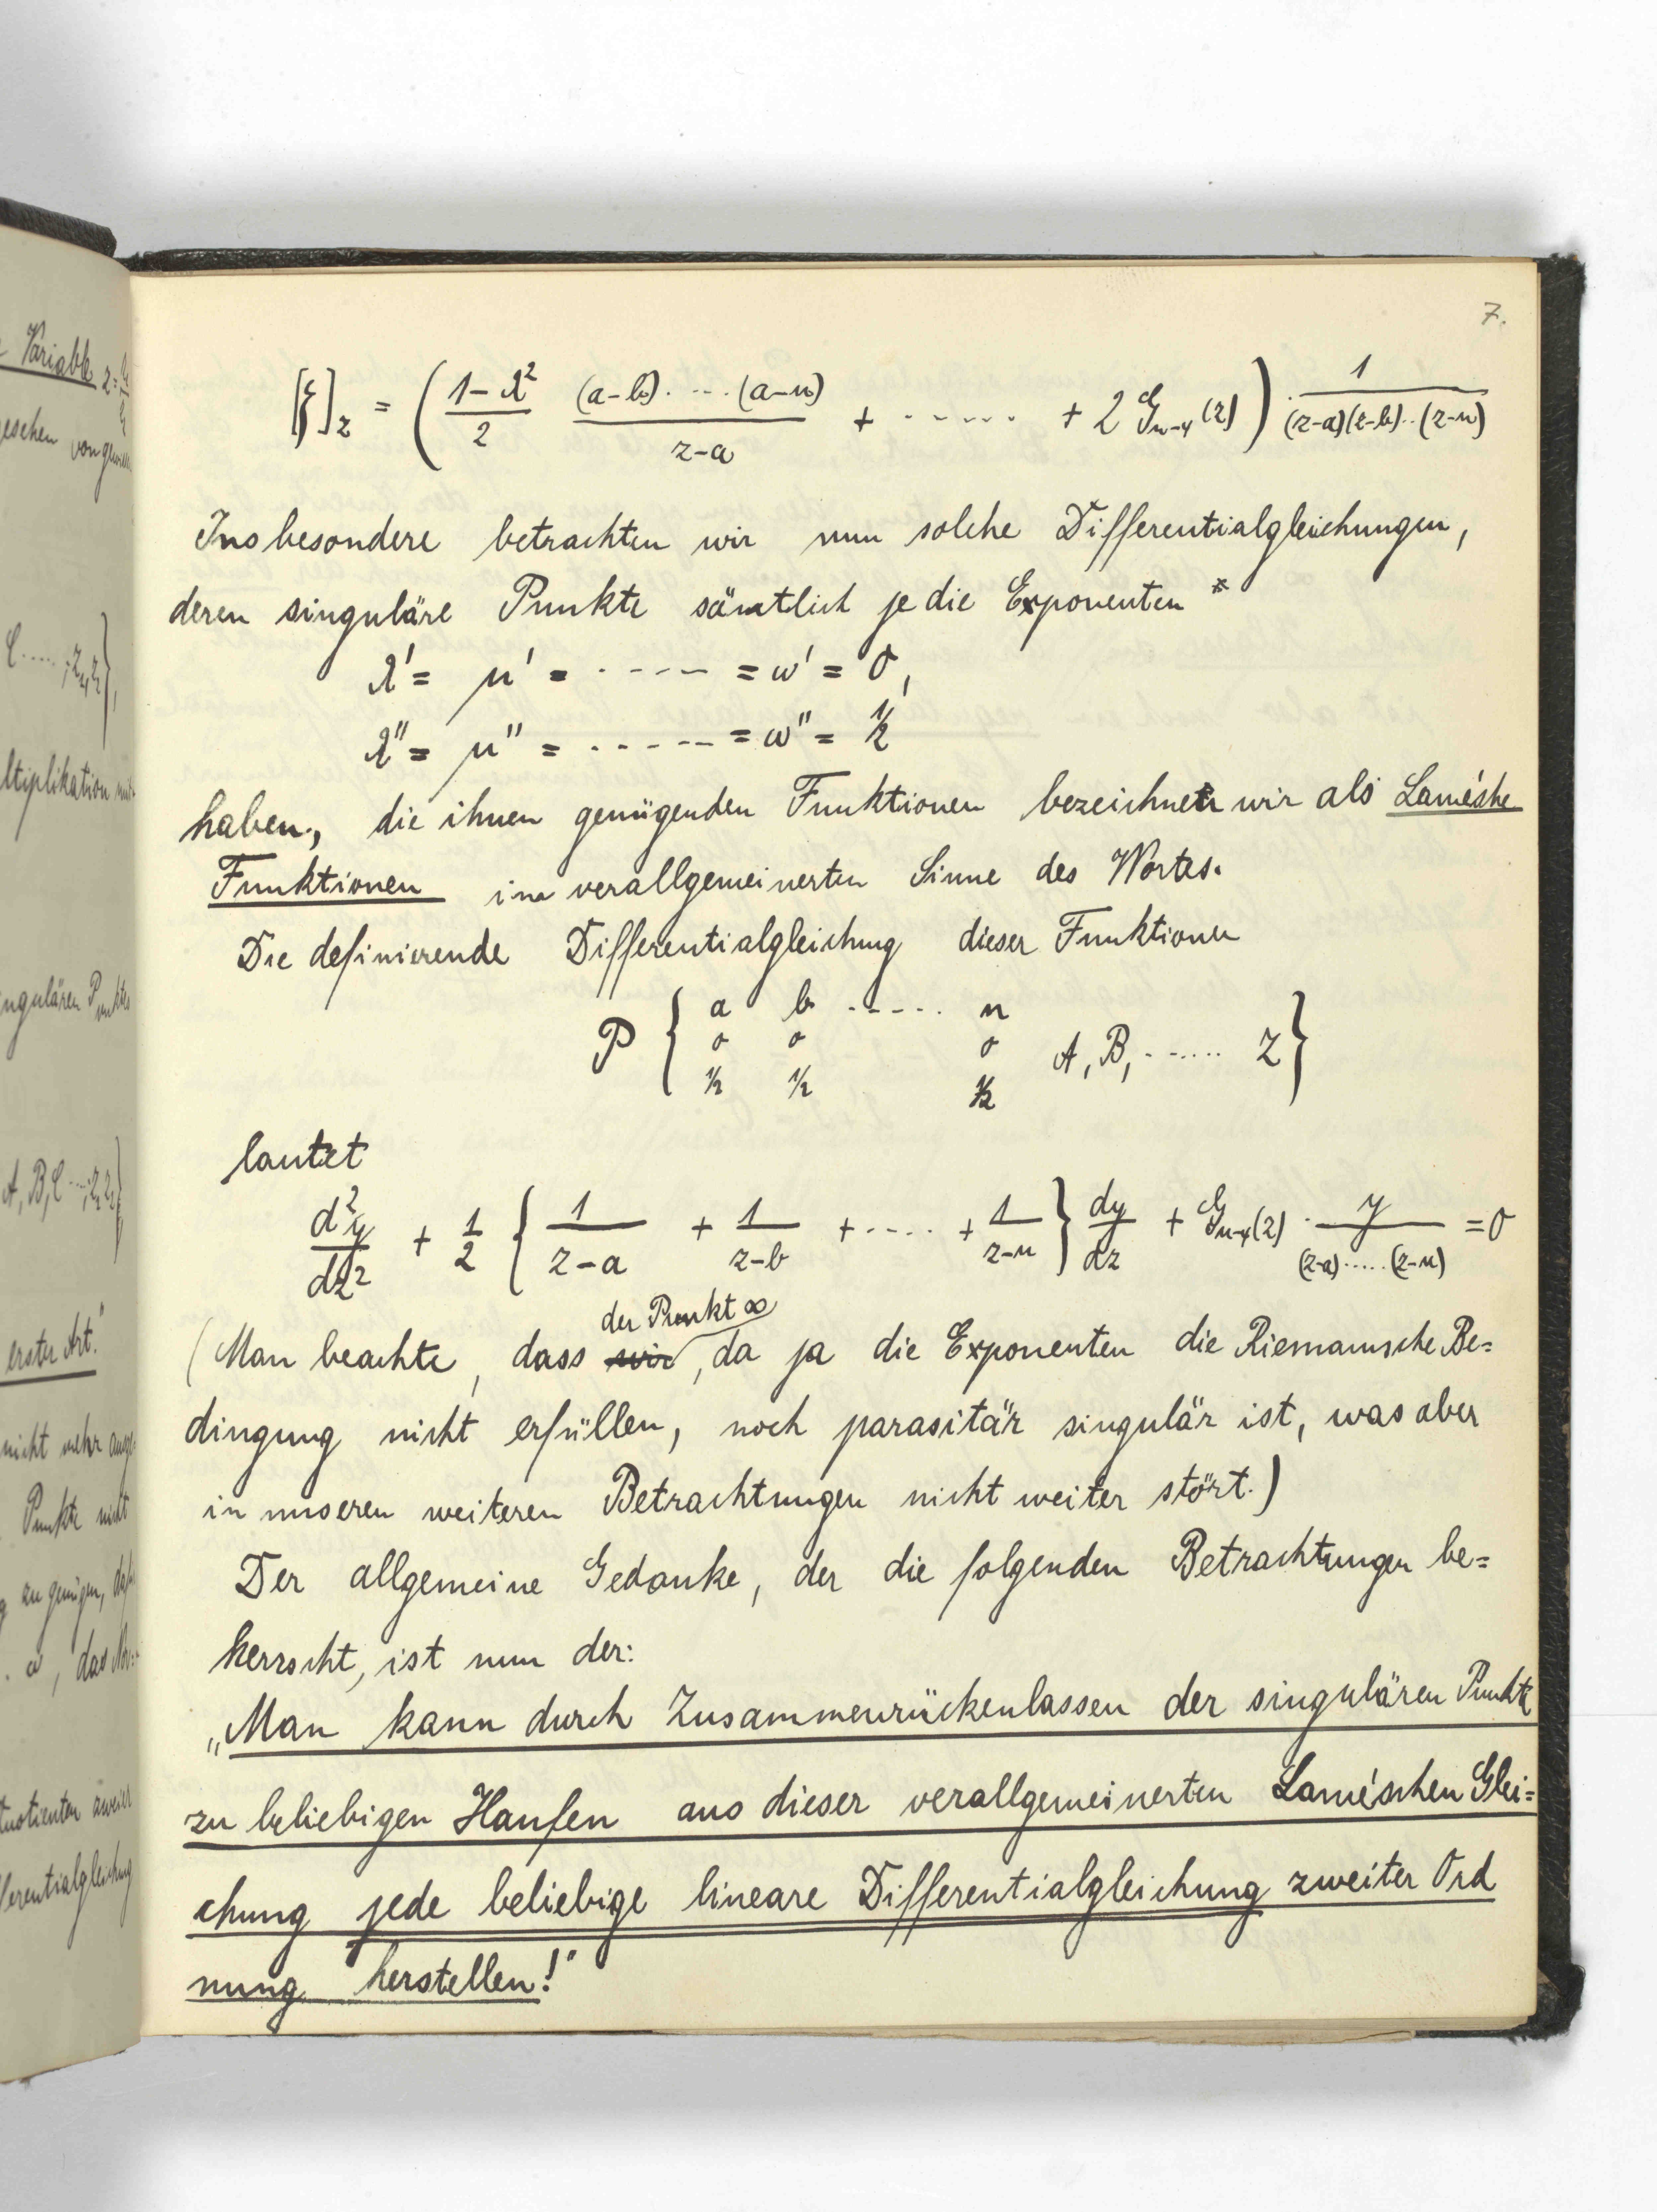 7.
[ξ]_z = ( (1-λ²)/2 · (a-b)·····(a-n)/(z-a) + ······ + 2 G_{n-4}(z) ) · 1/((z-a)(z-b)..(z-n))
Insbesondere betrachten wir nun solche Differentialgleichungen,
deren singuläre Punkte sämtlich je die Exponenten *
λ' = μ' = ····-- = ω' = 0,
λ'' = μ'' = ······-- = ω'' = 1/2
haben, die ihnen genügenden Funktionen bezeichnen wir als Lamésche
Funktionen im verallgemeinerten Sinne des Wortes.
Die definierende Differentialgleichung dieser Funktionen
P { a b ······ n
0 0 0 A, B, ······ z }
1/2 1/2 1/2
lautet
d²y/dz² + 1/2 { 1/(z-a) + 1/(z-b) + ····· + 1/(z-n) } dy/dz + G_{n-4}(z) · y/((z-a)·····(z-n)) = 0
der Punkt ∞
(Man beachte, dass wir, da ja die Exponenten die Riemannsche Be=
dingung nicht erfüllen, noch parasitär singulär ist, was aber
in unseren weiteren Betrachtungen nicht weiter stört.)
Der allgemeine Gedanke, der die folgenden Betrachtungen be=
herrscht, ist nun der:
„Man kann durch Zusammenrückenlassen der singulären Punkte
zu beliebigen Haufen aus dieser verallgemeinerten Laméschen Glei=
chung jede beliebige lineare Differentialgleichung zweiter Ord
nung herstellen!"